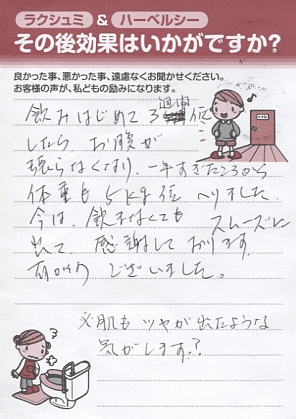 ラクシュミ & ハーベルシー
その後効果はいかがですか?
良かった事、悪かった事、遠慮なくお聞かせください。
お客様の声が、私どもの励みになります。
飲みはじめて3週間位
したら、お腹が
張らなくなり、一年すぎたころから
体重も5kg位へりました。
今は、飲まなくてもスムーズに
出て、感謝しております。
有がとうございました。
必肌もツヤが出たような
気がします。?